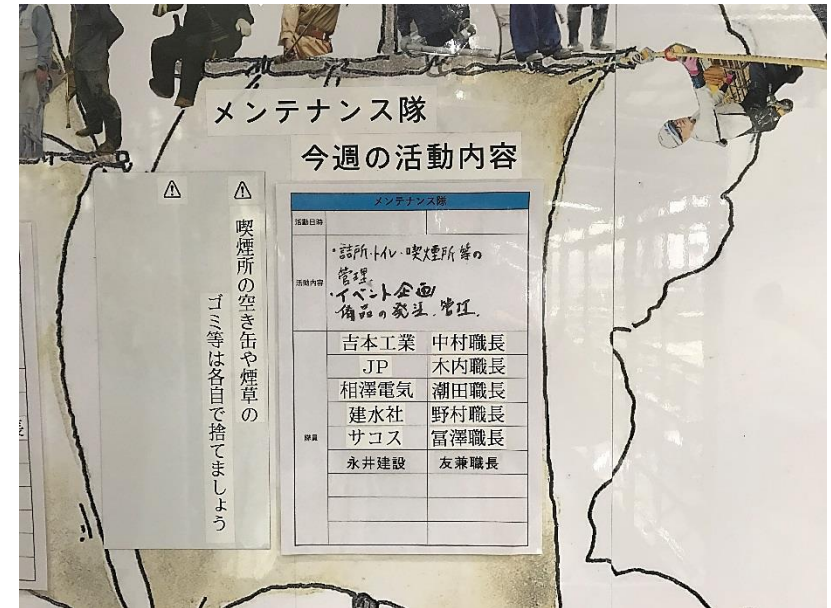 メンテナンス隊
今週の活動内容
⚠ ⚠
喫煙所の空き缶や煙草の
ゴミ等は各自で捨てましょう
メンテナンス隊
活動日時
活動内容
・詰所・トイレ・喫煙所等の
管理
・イベント企画
備品の発注、管理、
隊員
吉本工業 中村職長
JP 木内職長
相澤電気 潮田職長
建水社 野村職長
サコス 冨澤職長
永井建設 友兼職長
長